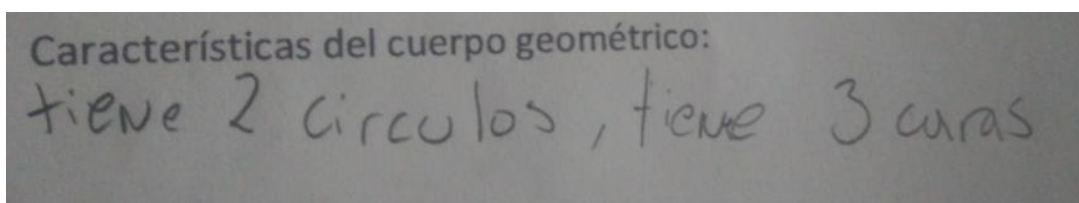 Características del cuerpo geométrico:
tiene 2 circulos, tiene 3 caras